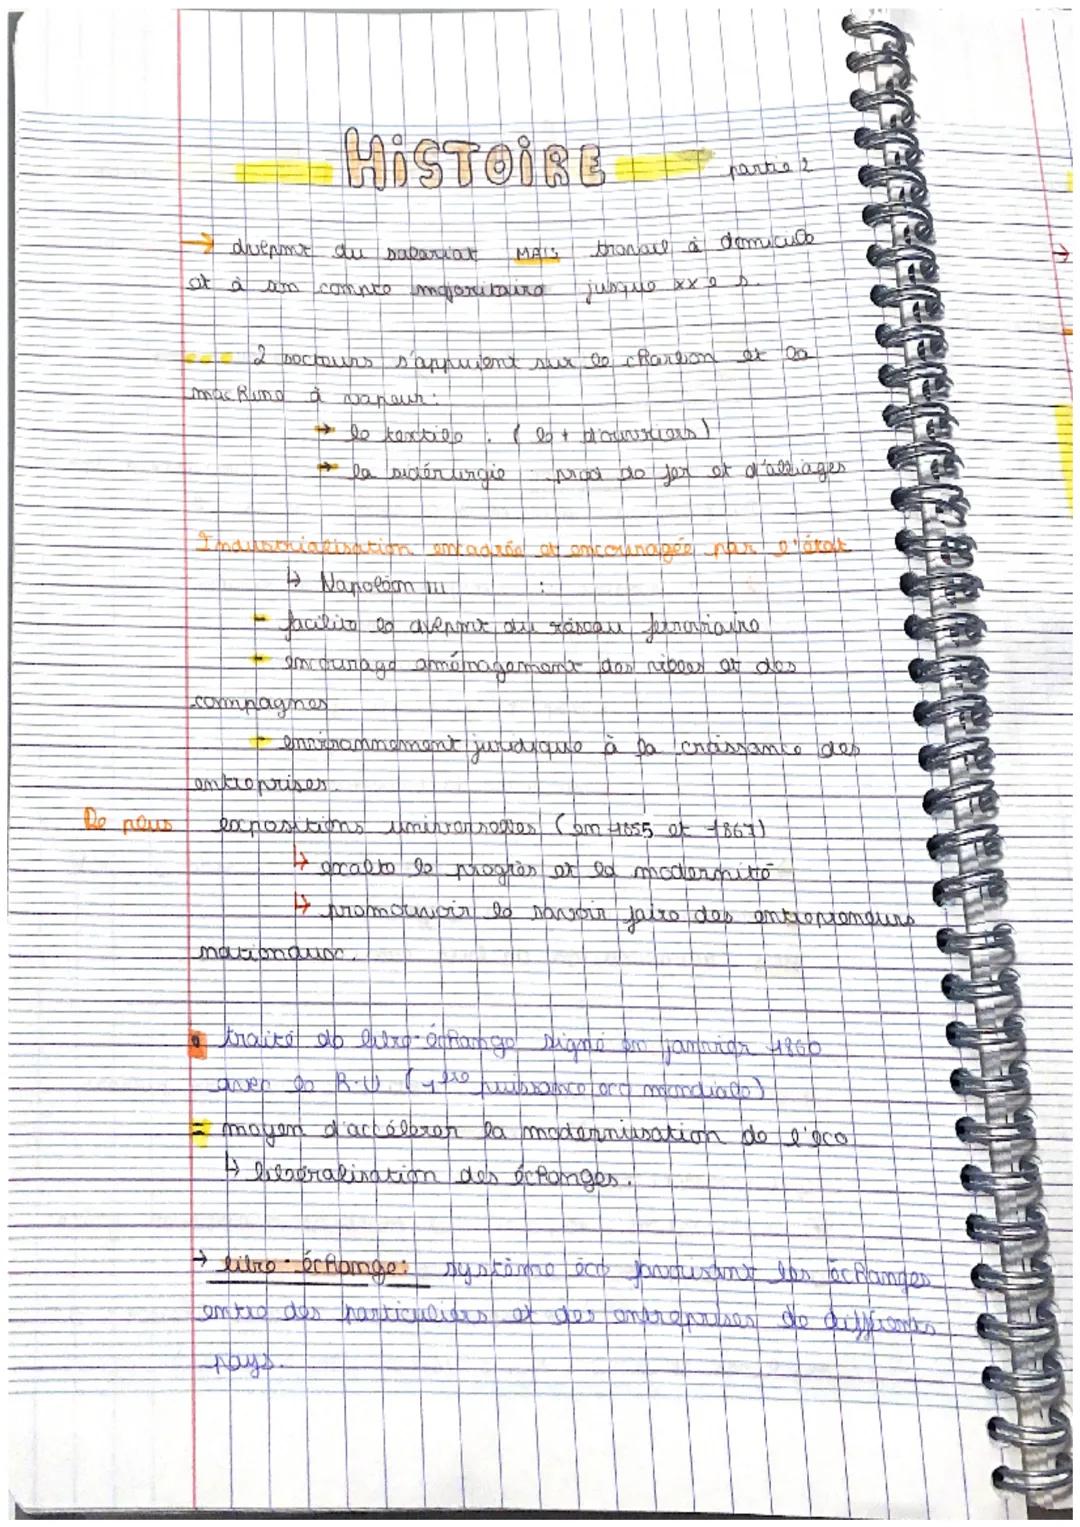 HISTOIRE partie 2
→ dvlepmt du salariat MAIS travail à domicile
et à son compte majoritaire jusque XX e s.
2 secteurs s'appuient sur le charbon et la
machine à vapeur :
→ le textile . ( le + d'ouvriers )
→ la sidérurgie : prod de fer et d'alliages
Industrialisation encadrée et encouragée par l'état
↳ Napoléon III :
- facilite le dvlepmt du réseau ferroviaire
- encourage aménagement des villes et des
campagnes
- environnement juridique à la croissance des
entreprises.
De plus expositions universelles (en 1855 et 1867)
↳ exalte le progrès et la modernité
↳ promouvoir le savoir faire des entrepreneurs
nationaux.
traité de libre-échange signé en janvier 1860
avec le R-U (1ère puissance éco mondiale)
= moyen d'accélérer la modernisation de l'éco
↳ libéralisation des échanges.
→ libre-échange : système éco les échanges
entre des particuliers et des entreprises de différents
pays.